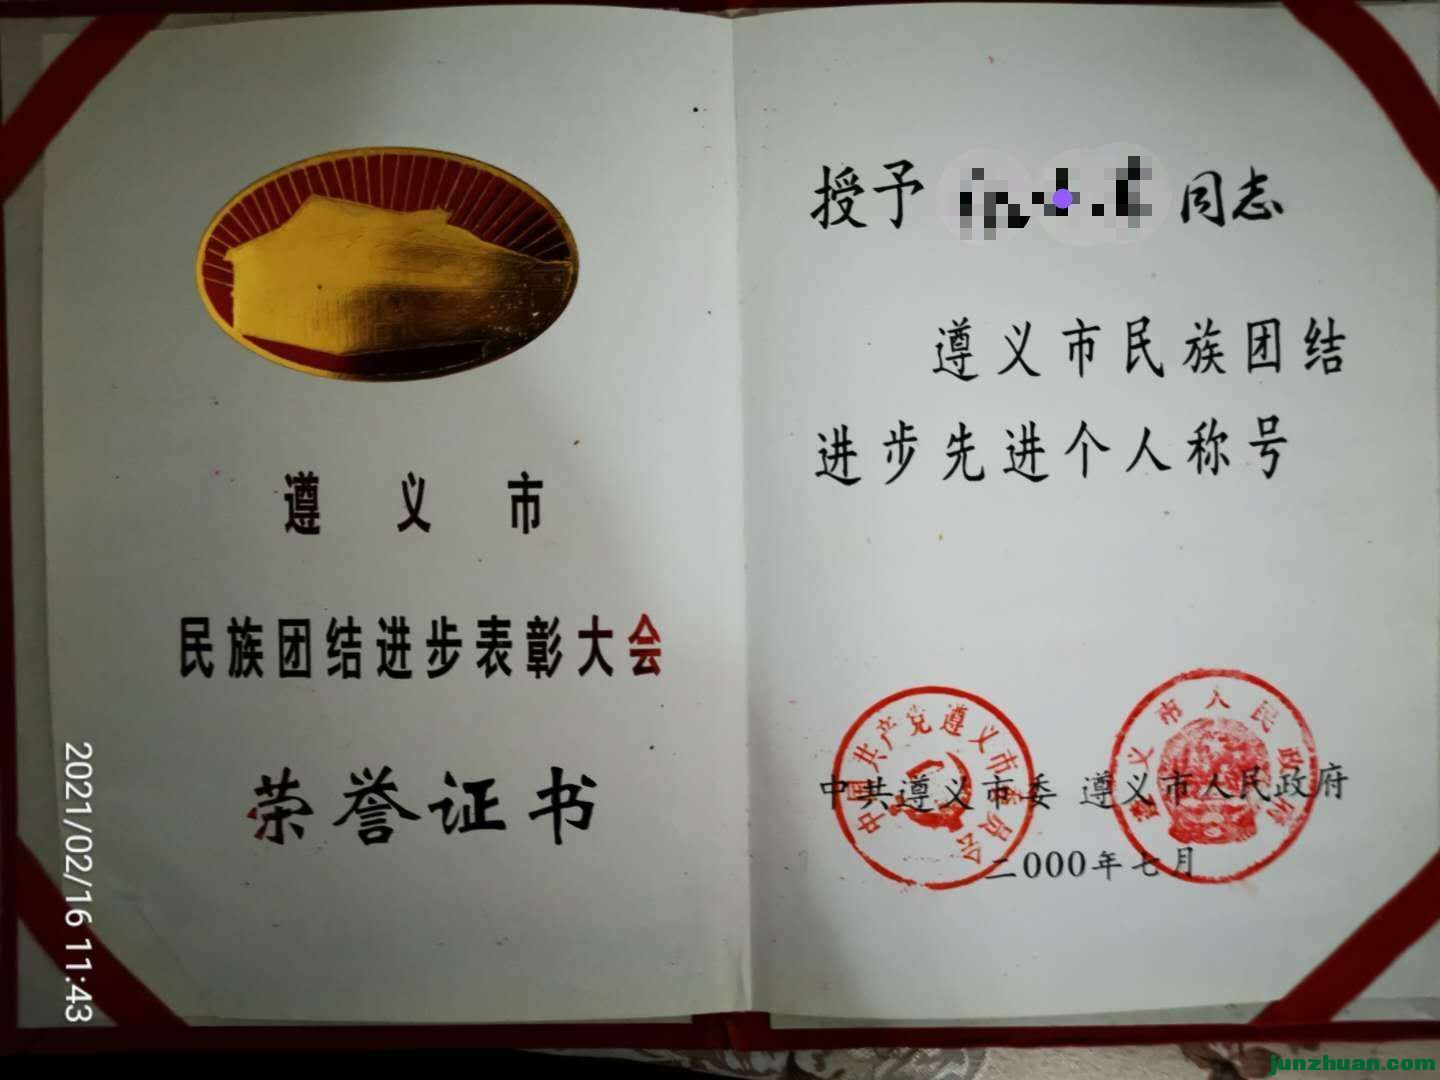 遵义市
民族团结进步表彰大会
荣誉证书
授予 同志
遵义市民族团结
进步先进个人称号
中国共产党遵义市委员会
遵义市人民政府
中共遵义市委 遵义市人民政府
二000年七月
2021/02/16 11:43
junzhuan.com